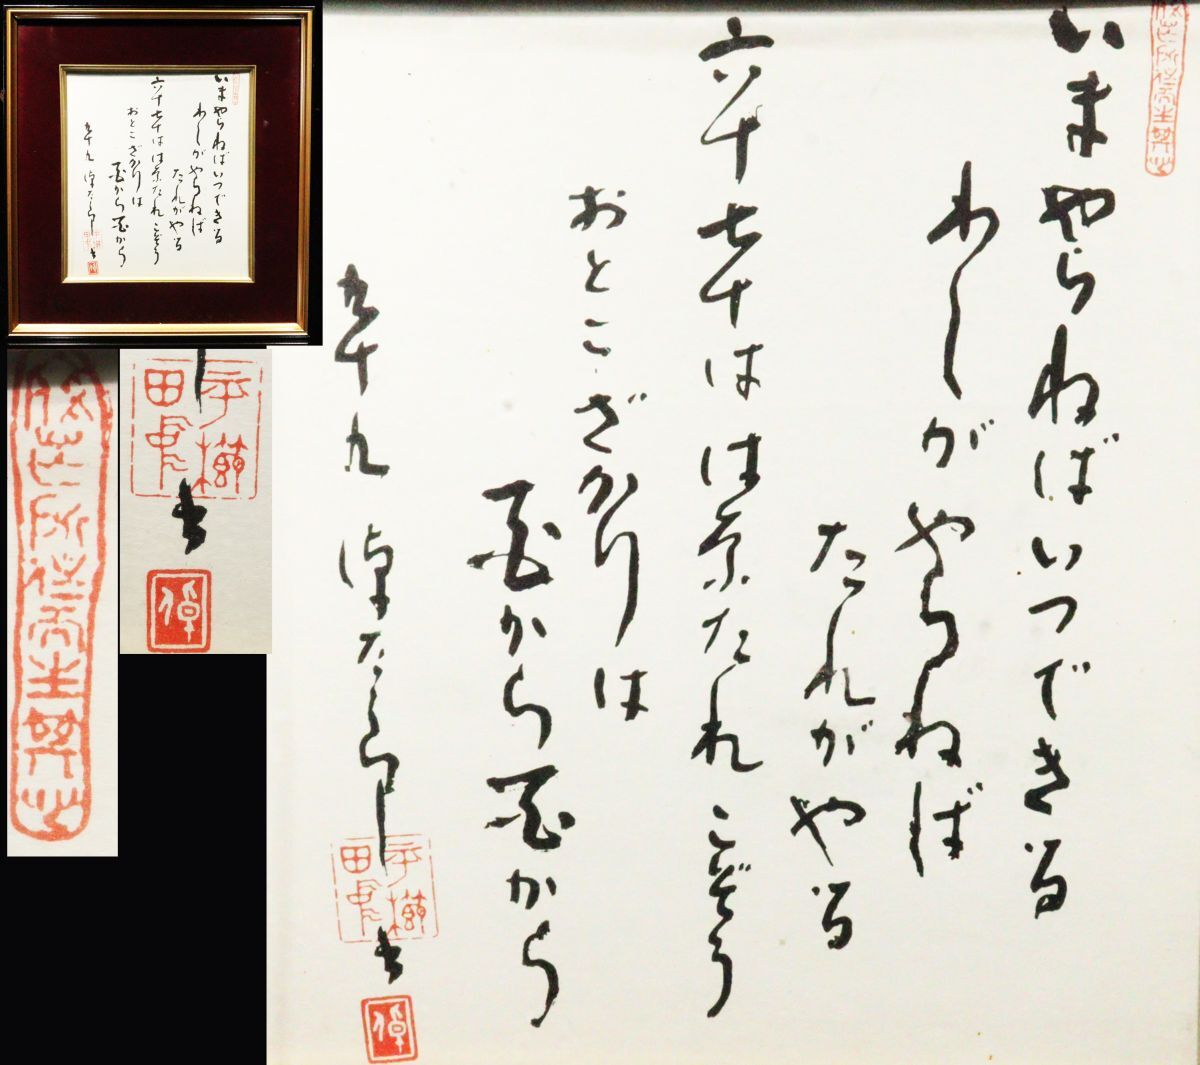 いまやらねばいつできる
わしがやらねば
たれがやる
六十七十ははなたれこぞう
おとこざかりは
百から百から
九十九 倬太郎 書
平櫛
田中
倬